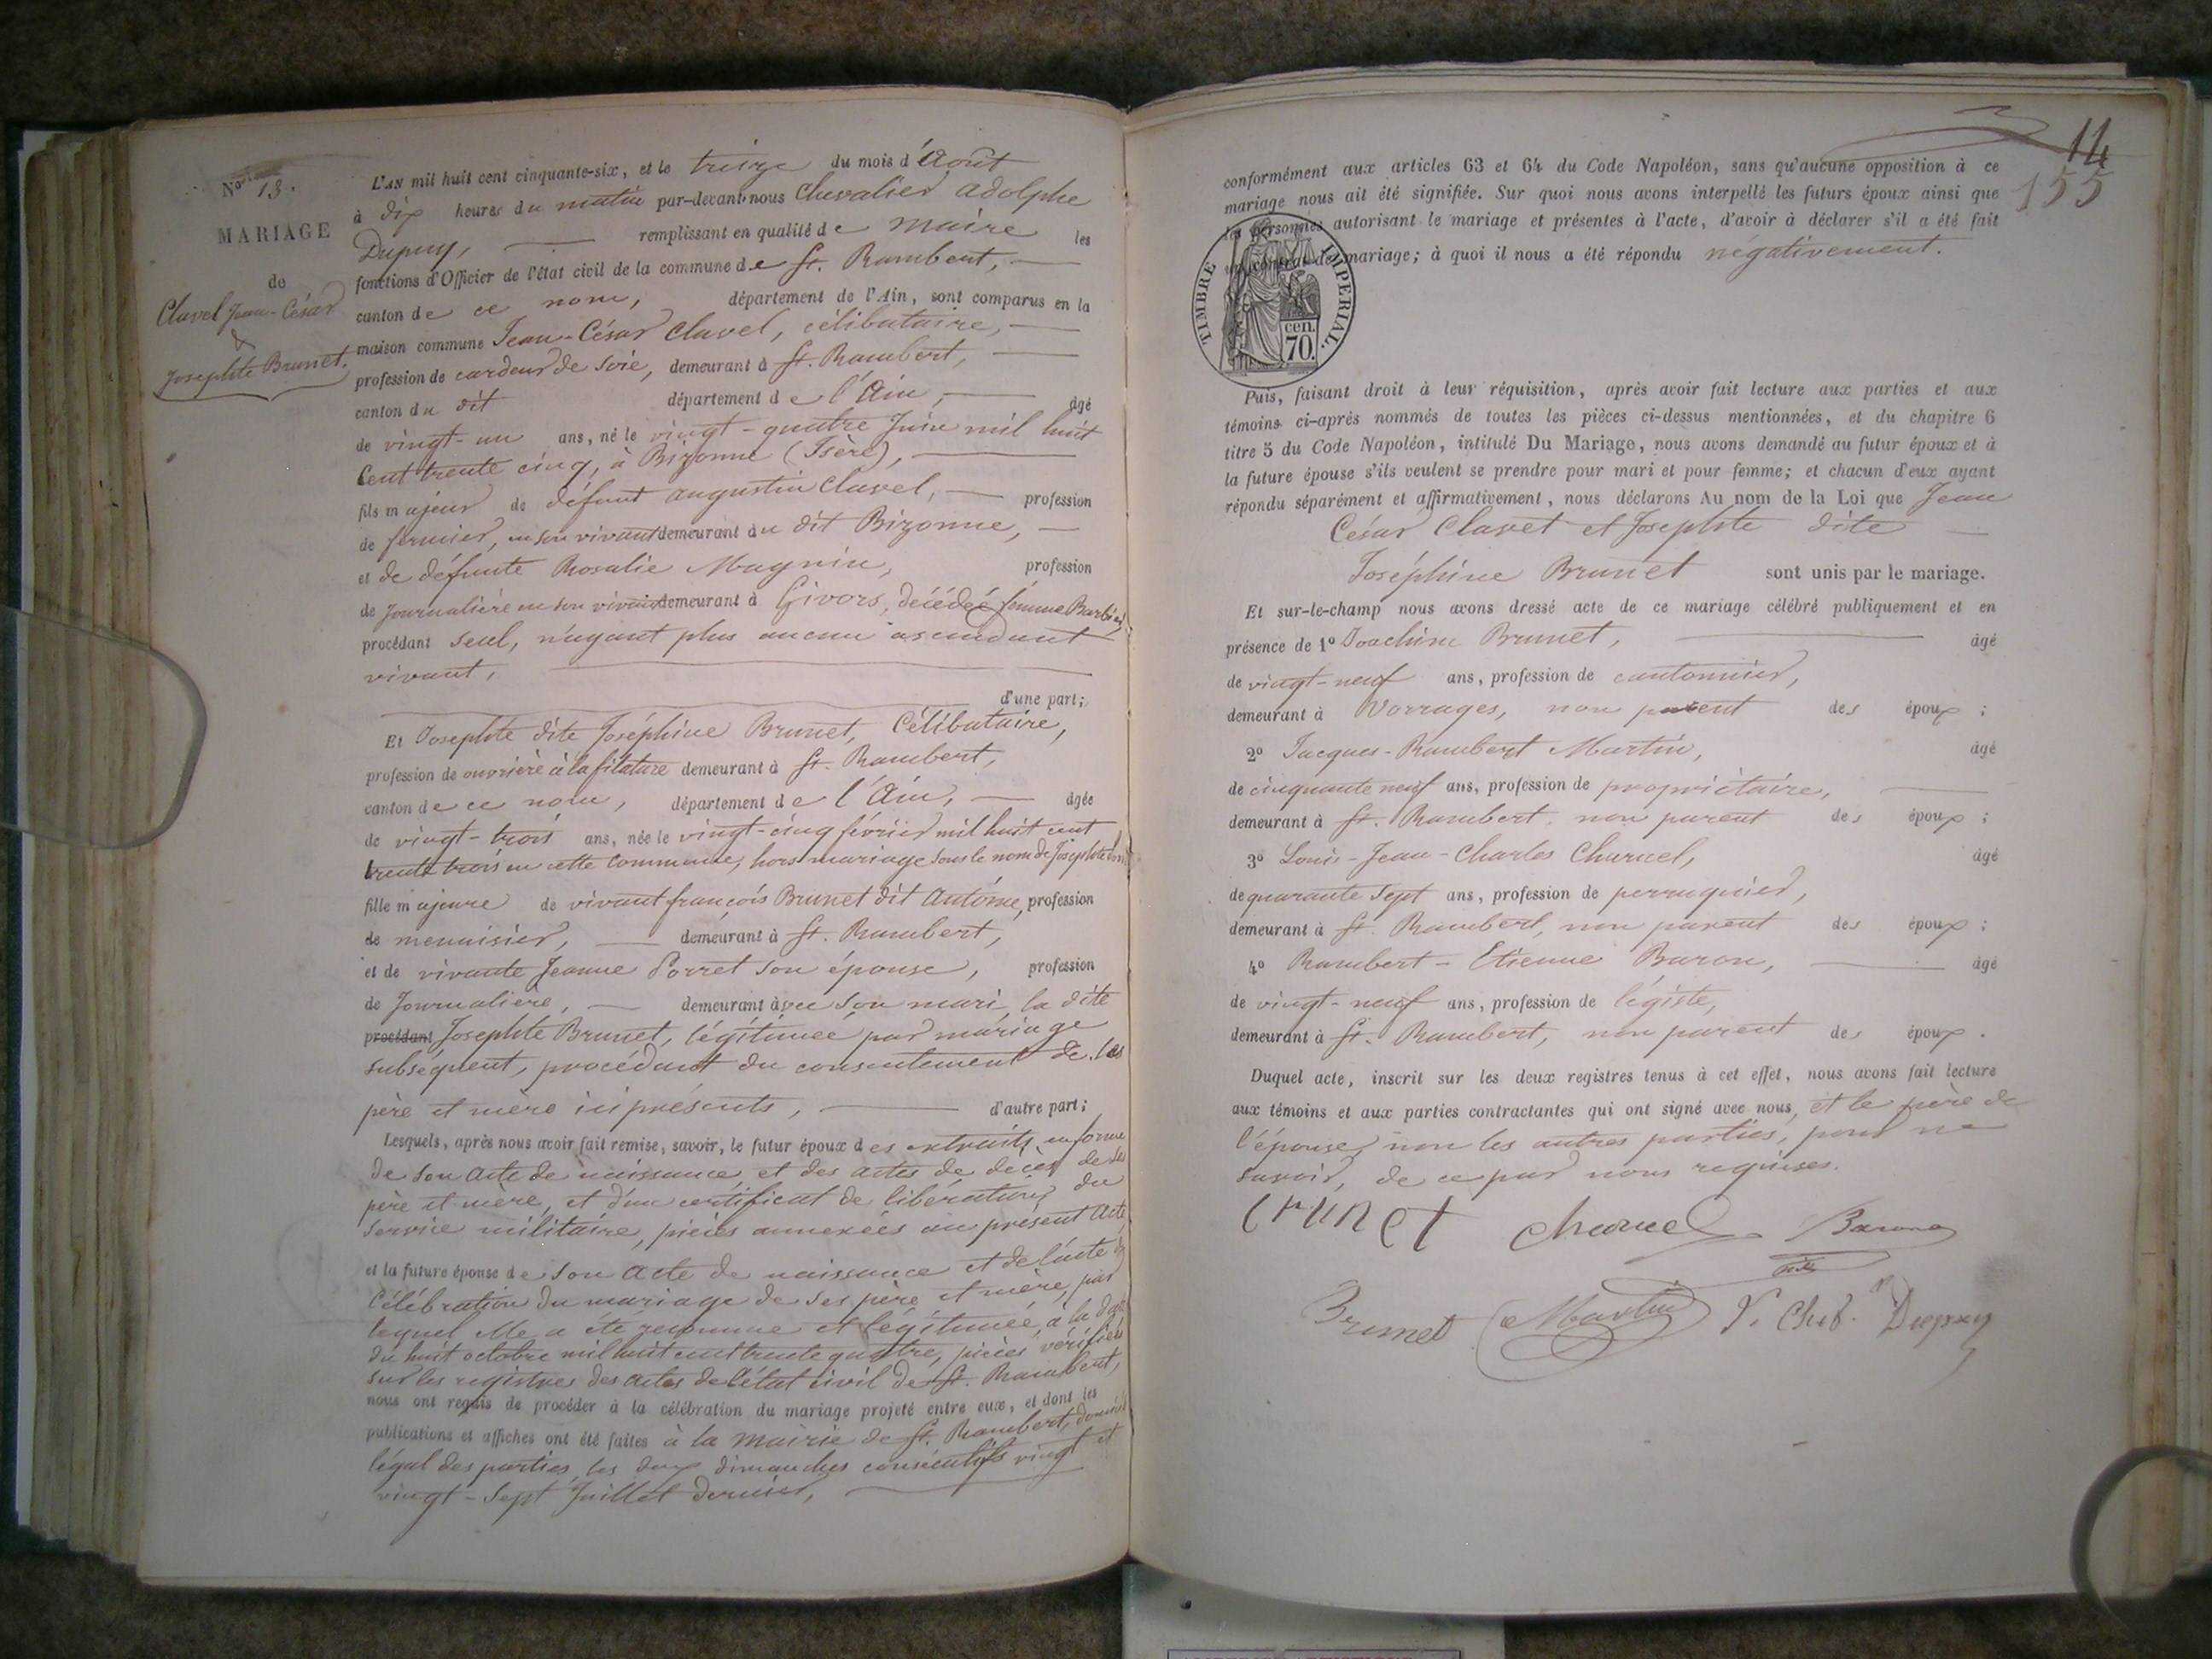 No 13.
MARIAGE
de
Clavel Jean-César
&
Josephte Brunet.
L'AN mil huit cent cinquante-six, et le treize du mois d'Août
à dix heures du matin par-devant nous Chevalier adolphe
Dupuy, remplissant en qualité de maire les
fonctions d'Officier de l'état civil de la commune de St. Rambert,
canton de ce nom, département de l'Ain, sont comparus en la
maison commune Jean-César Clavel, célibataire,
profession de cardeur de soie, demeurant à St. Rambert,
canton du dit département de l'Ain, âgé
de vingt-un ans, né le vingt-quatre Juin mil huit
Cent trente cinq, à Bizonne (Isère),
fils majeur de défunt augustin Clavel, profession
de fermier, en son vivant demeurant au dit Bizonne,
et de défunte Rosalie Magnin, profession
de Journalière en son vivant demeurant à Givors, décédée femme
procédant seul, n'ayant plus aucun ascendant
vivant,
d'une part;
Et Josephte dite Joséphine Brunet, Célibataire,
profession de ouvrière à la filature demeurant à St. Rambert,
canton de ce nom, département de l'Ain, âgée
de vingt-trois ans, née le vingt-cinq février mil huit cent
trente trois en cette commune, hors mariage sous le nom de Josephte
fille majeure de vivant françois Brunet dit Antome, profession
de menuisier, demeurant à St. Rambert,
et de vivante Jeanne Porret son épouse, profession
de Journalière, demeurant avec son mari, la dite
procédant Josephte Brunet, légitimée par mariage
subséquent, procédant du consentement de ses
père et mère ici présents, d'autre part;
Lesquels, après nous avoir fait remise, savoir, le futur époux des extraits en forme
de son acte de naissance, et des actes de décès de ses
père et mère, et d'un certificat de libération du
service militaire, pièces annexées au présent acte
et la future épouse de son acte de naissance et de l'acte de
Célébration du mariage de ses père et mère, par
lequel elle a été reconnue et légitimée, à la date
du huit octobre mil huit cent trente quatre, pièces vérifiées
sur les registres des actes de l'état civil de St. Rambert,
nous ont requis de procéder à la célébration du mariage projeté entre eux, et dont les
publications et affiches ont été faites à la mairie de St. Rambert, domicile
légal des parties, les deux dimanches consécutifs vingt et
vingt-sept Juillet dernier,
14
155
conformément aux articles 63 et 64 du Code Napoléon, sans qu'aucune opposition à ce
mariage nous ait été signifiée. Sur quoi nous avons interpellé les futurs époux ainsi que
les personnes autorisant le mariage et présentes à l'acte, d'avoir à déclarer s'il a été fait
un contrat de mariage; à quoi il nous a été répondu négativement.
TIMBRE IMPERIAL.
cen.
70.
Puis, faisant droit à leur réquisition, après avoir fait lecture aux parties et aux
témoins ci-après nommés de toutes les pièces ci-dessus mentionnées, et du chapitre 6
titre 5 du Code Napoléon, intitulé Du Mariage, nous avons demandé au futur époux et à
la future épouse s'ils veulent se prendre pour mari et pour femme; et chacun d'eux ayant
répondu séparément et affirmativement, nous déclarons Au nom de la Loi que Jean
César Clavel et Josephte dite
Joséphine Brunet sont unis par le mariage.
Et sur-le-champ nous avons dressé acte de ce mariage célébré publiquement et en
présence de 1º Joachim Brunet, âgé
de vingt-neuf ans, profession de cantonnier,
demeurant à Vorrages, non parent des époux;
2º Jacques-Rambert Martin, âgé
de cinquante neuf ans, profession de propriétaire,
demeurant à St. Rambert, non parent des époux;
3º Louis-Jean-Charles Charvel, âgé
de quarante sept ans, profession de perruquier,
demeurant à St. Rambert, non parent des époux;
4º Rambert-Etienne Baron, âgé
de vingt-neuf ans, profession de légiste,
demeurant à St. Rambert, non parent des époux.
Duquel acte, inscrit sur les deux registres tenus à cet effet, nous avons fait lecture
aux témoins et aux parties contractantes qui ont signé avec nous, et le père de
l'épouse, non les autres parties, pour ne
savoir, de ce par nous requises.
brunet Charvel Baron
Brunet Martin Chev. Dupuy